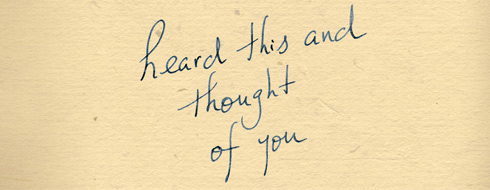 heard this and
thought
of you